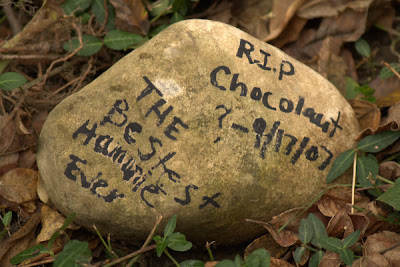 R.I.P
Chocolaut
? - 9/17/07
THE
Bestest
Hamwie
Ever